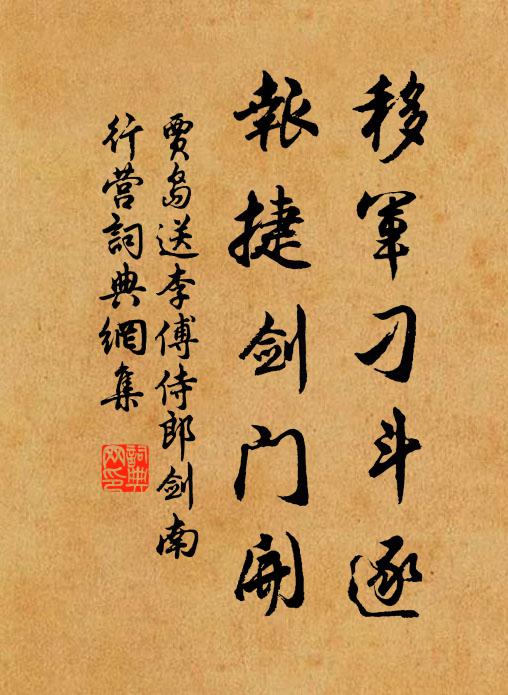 移軍刁斗逐
報捷剑门開
賈島送李傅侍郎剑南
行营詞典網集
詞典网印